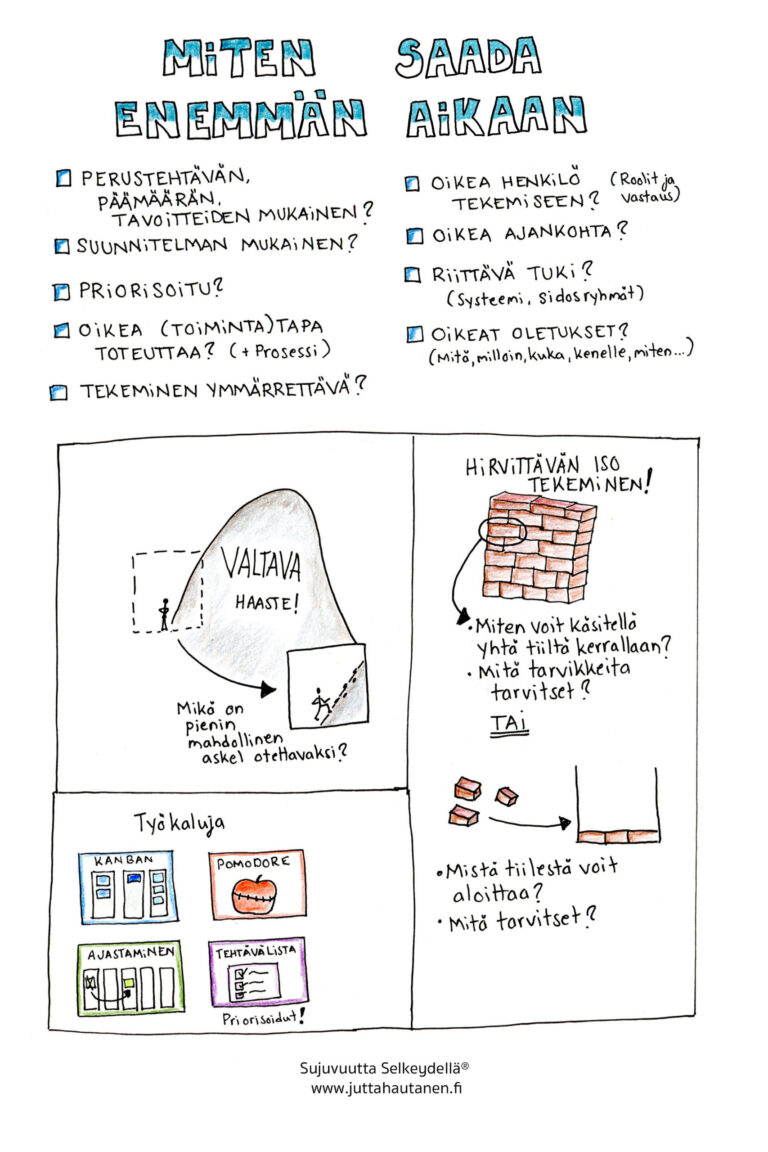 MITEN SAADA
ENEMMÄN AIKAAN
PERUSTEHTÄVÄN,
PÄÄMÄÄRÄN,
TAVOITTEIDEN MUKAINEN?
SUUNNITELMAN MUKAINEN?
PRIORISOITU?
OIKEA (TOIMINTA)TAPA
TOTEUTTAA? (+ Prosessi)
TEKEMINEN YMMÄRRETTÄVÄ?
OIKEA HENKILÖ (Roolit ja
TEKEMISEEN? vastaus)
OIKEA AJANKOHTA?
RIITTÄVÄ TUKI?
(Systeemi, sidosryhmät)
OIKEAT OLETUKSET?
(Mitä, milloin, kuka, kenelle, miten...)
VALTAVA
HAASTE!
Mikä on
pienin
mahdollinen
askel otettavaksi?
HIRVITTÄVÄN ISO
TEKEMINEN!
• Miten voit käsitellä
yhtä tiiltä kerrallaan?
• Mitä tarvikkeita
tarvitset?
TAI
• Mistä tiilestä voit
aloittaa?
• Mitä tarvitset?
Työkaluja
KANBAN
POMODORE
AJASTAMINEN
TEHTÄVÄLISTA
Priorisoidut!
Sujuvuutta Selkeydellä®
www.juttahautanen.fi